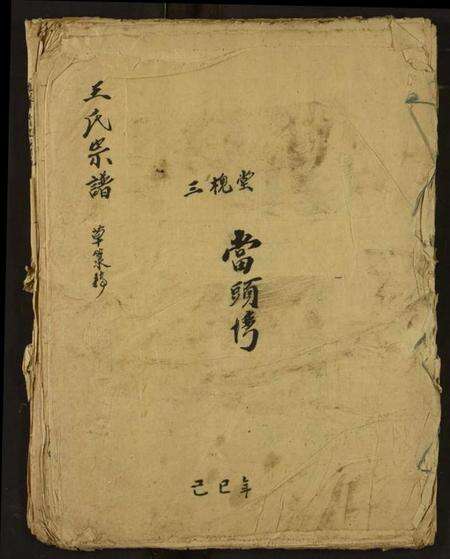 王氏宗譜
草稿
三槐堂
當頭塆
己巳年